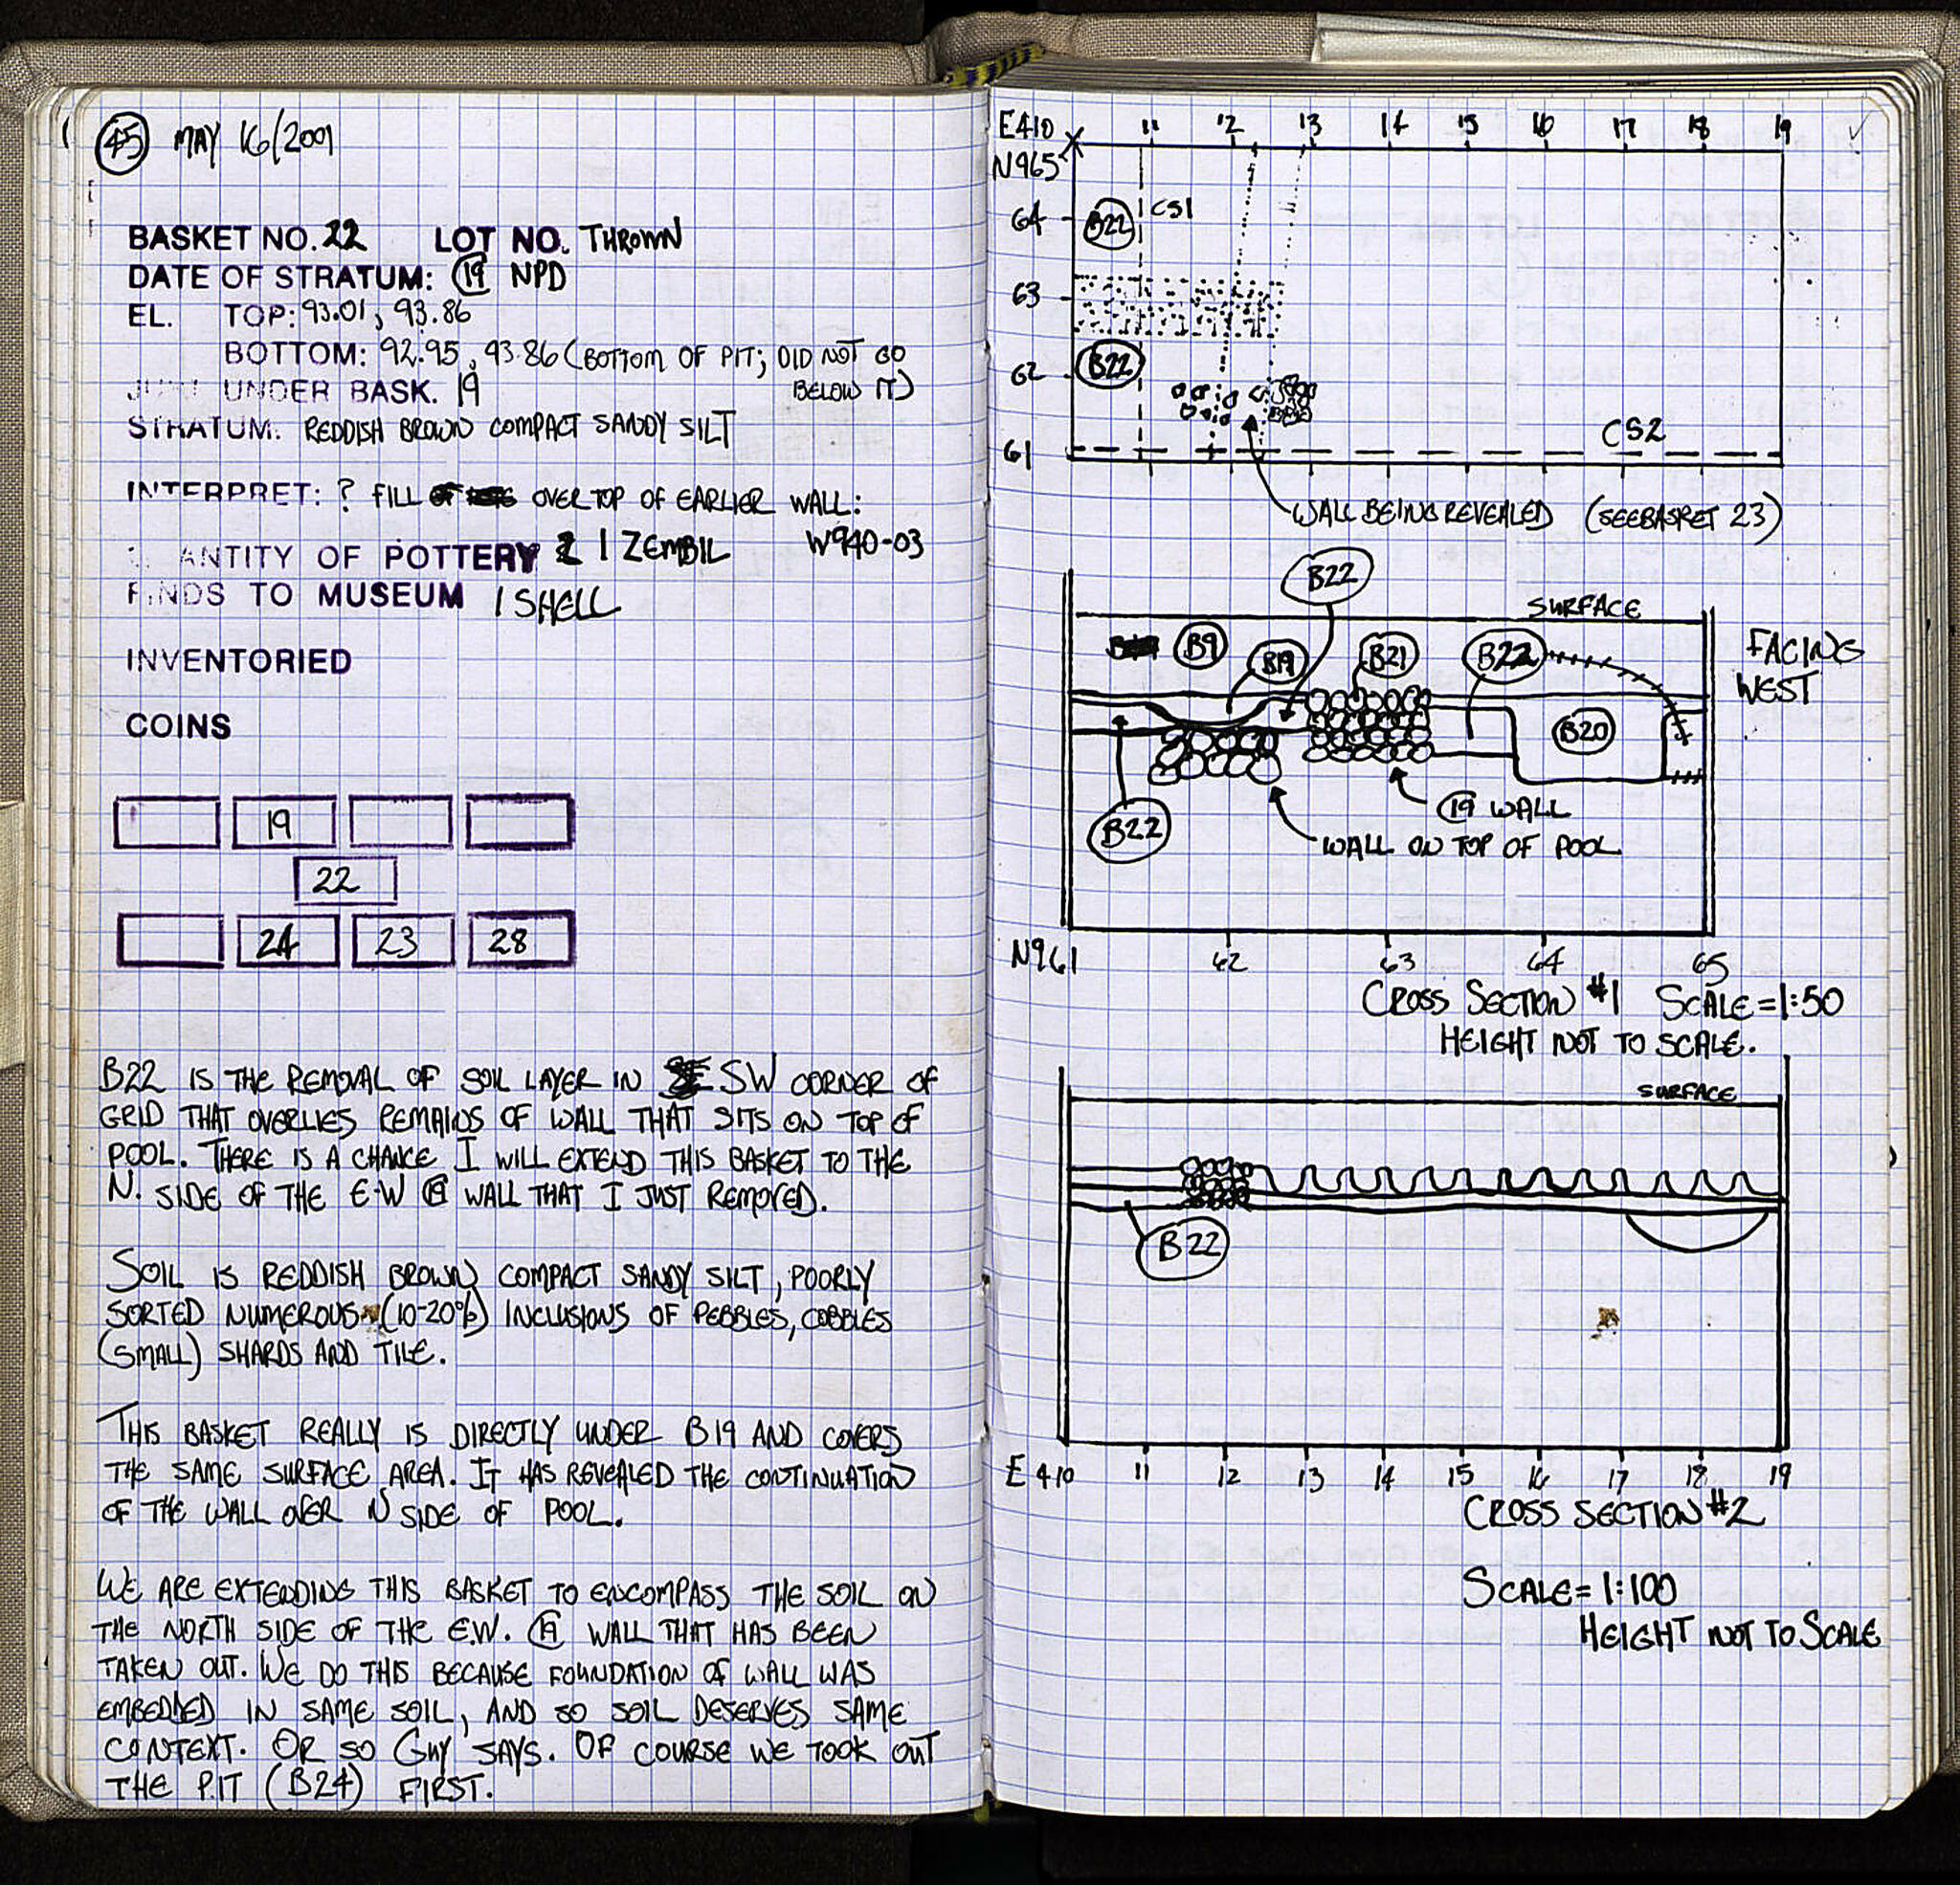 45 MAY 16/2001
BASKET NO. 22 LOT NO. THROWN
DATE OF STRATUM: 19 NPD
EL. TOP: 93.01, 93.86
BOTTOM: 92.95, 93.86 (BOTTOM OF PIT; DID NOT GO
BELOW IT)
UNDER BASK. 19
STRATUM: REDDISH BROWN COMPACT SANDY SILT
INTERPRET: ? FILL OVER TOP OF EARLIER WALL:
W940-03
ANTITY OF POTTERY 1 ZEMBIL
FINDS TO MUSEUM 1 SHELL
INVENTORIED
COINS
19
22
24 23 28
B22 IS THE REMOVAL OF SOIL LAYER IN SW CORNER OF
GRID THAT OVERLIES REMAINS OF WALL THAT SITS ON TOP OF
POOL. THERE IS A CHANCE I WILL EXTEND THIS BASKET TO THE
N. SIDE OF THE E-W 19 WALL THAT I JUST REMOVED.
SOIL IS REDDISH BROWN COMPACT SANDY SILT, POORLY
SORTED NUMEROUS (10-20%) INCLUSIONS OF PEBBLES, COBBLES
(SMALL) SHARDS AND TILE.
THIS BASKET REALLY IS DIRECTLY UNDER B19 AND COVERS
THE SAME SURFACE AREA. IT HAS REVEALED THE CONTINUATION
OF THE WALL OVER N SIDE OF POOL.
WE ARE EXTENDING THIS BASKET TO ENCOMPASS THE SOIL ON
THE NORTH SIDE OF THE E.W. 19 WALL THAT HAS BEEN
TAKEN OUT. WE DO THIS BECAUSE FOUNDATION OF WALL WAS
EMBEDDED IN SAME SOIL, AND SO SOIL DESERVES SAME
CONTEXT. OR SO GUY SAYS. OF COURSE WE TOOK OUT
THE PIT (B24) FIRST.
E410 11 12 13 14 15 16 17 18 19
N965
64 B22 CS1
63
62 B22
61 CS2
WALL BEING REVEALED (SEE BASKET 23)
B22
SURFACE
B9 B19 B21 B22
FACING
WEST
B20
B22
19 WALL
WALL ON TOP OF POOL
N961 62 63 64 65
CROSS SECTION #1 SCALE=1:50
HEIGHT NOT TO SCALE.
SURFACE
B22
E410 11 12 13 14 15 16 17 18 19
CROSS SECTION #2
SCALE=1:100
HEIGHT NOT TO SCALE